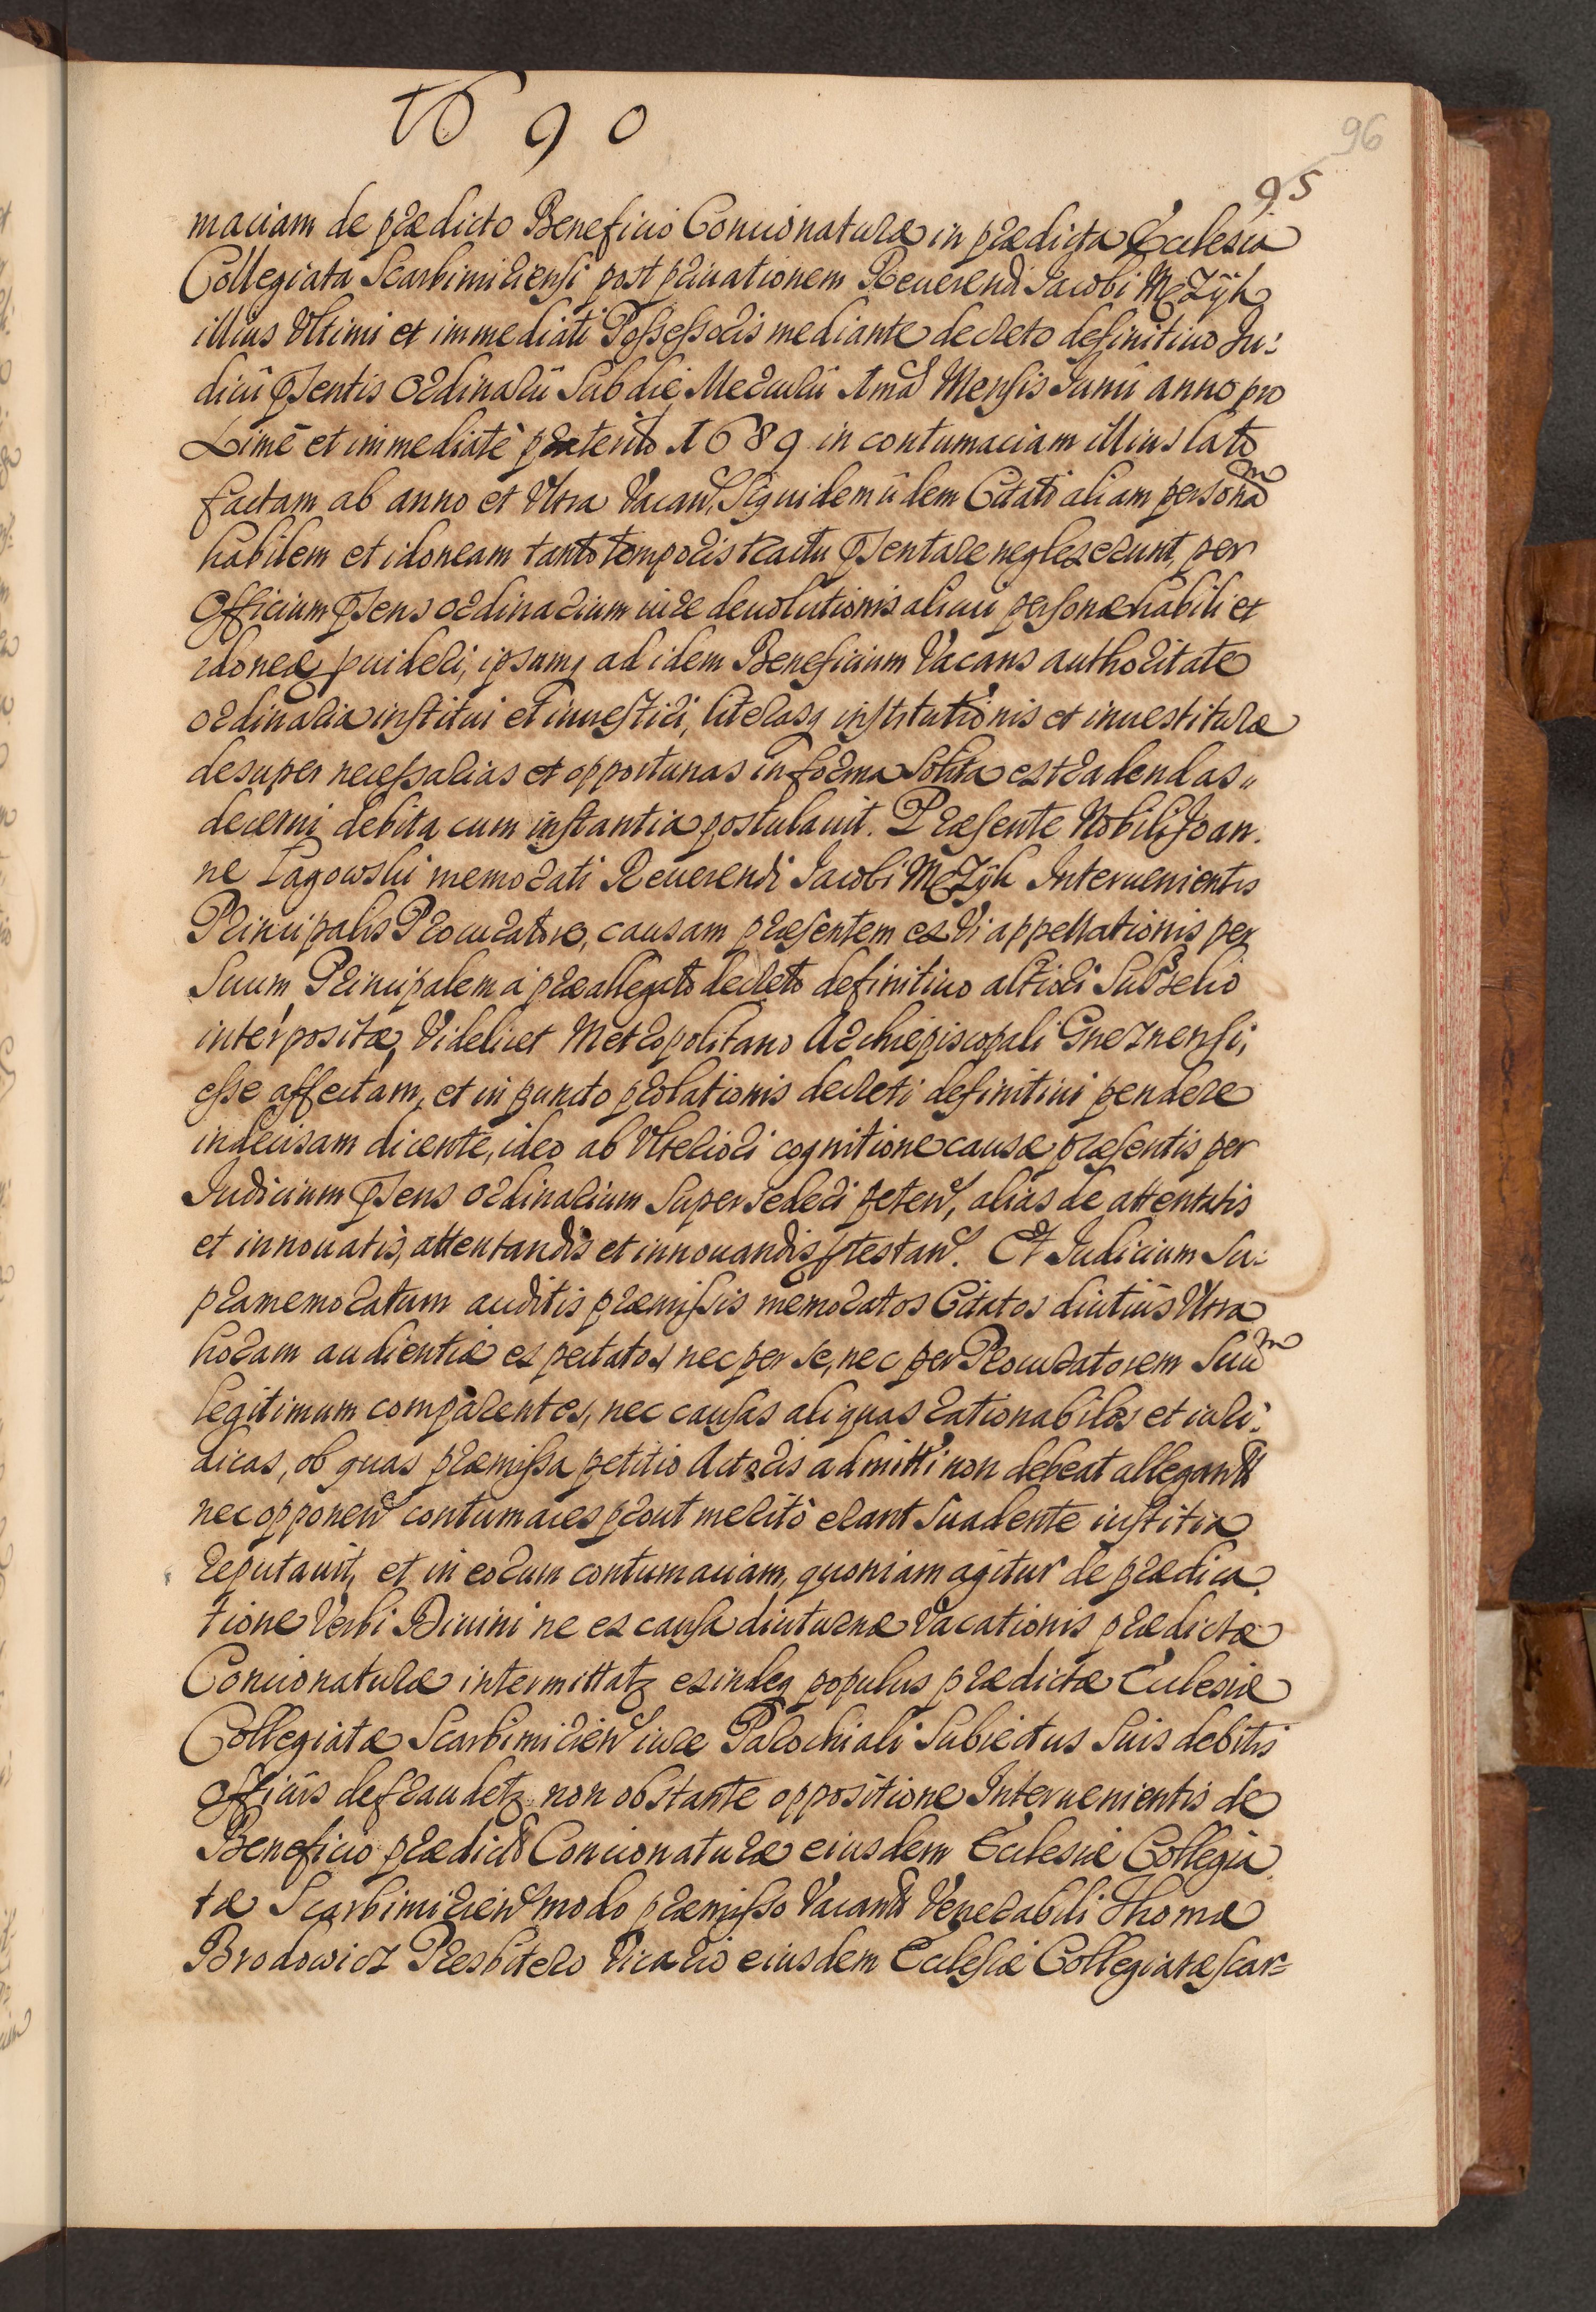 1690
96
95
maciam de prædicto Beneficio Concionaturæ in prædicta Ecclesia
Collegiata Scarbimiriensi post priuationem Reuerendi Iacobi MęZijk
illius Vltimi et immediati Possessoris mediante decreto definitiuo Iu:
dicii pñsentis Ordinarii Sub die Mercurii 1ma Mensis Iunii anno pro
ximè et immediatè præterito 1689 in contumaciam illius lato
factam ab anno et Vltra Vacan. Siquidem iidem Citati aliam personam
habilem et idoneam tanto temporis tractu pñsentare neglexerunt, per
Officium pñsens ordinarium iure deuolutionis alicui personæ habili et
idoneæ prouideri, ipsamq ad idem Beneficium Vacans authoritate
ordinaria institui et inuestiri, literasq institutionis et inuestituræ
desuper necessarias et opportunas in forma Solita extradendas,,
decerni debita cum instantia postulauit. Præsente Nobili Ioan.
ne Łagowski memorati Reuerendi Iacobi MęZijk Interuenientis
Principalis Procuratore, causam præsentem ex Vi appellationis per
Suum Principalem à præallegato decreto definitiuo altiori Subselio
interpositæ, Videlicet Metropolitano Archiepiscopali Gneznensi,
esse affectam, et in puncto prolationis decreti definitiui pendere
indecisam dicente, ideo ab Vlteriori cognitione causæ præsentis per
Iudicium pñsens ordinarium Supersederi peten, alias de attentatis
et innouatis, attentandis et innouandis ptestan. Et Iudicium Su:
pramemoratum auditis præmissis memoratos Citatos diutiùs Vltra
horam audientiæ expectatos, nec per se, nec per Procuratorem Suum
legitimum comparentes, nec causas aliquas rationabiles et iuri:
dicas, ob quas præmissa petitio Actoris admitti non debeat allegantes
nec opponen contumaces prout meritò erant Suadente iustitia
reputauit, et in eorum contumaciam, quoniam agitur de prædica
tione Verbi Diuini ne ex causa diuturnæ Vacationis prædictæ
Concionaturæ intermittatz exindeq populus prædictæ Ecclesiæ
Collegiatæ Scarbimirien iure Parochiali Subiectus Suis debitis
officiis defraudetz non obstante oppositione Interuenientis de
Beneficio prædicto Concionaturæ eiusdem Ecclesiæ Collegia
tæ Scarbimirien modo præmisso Vacanti Venerabili Thomæ
Brodowicz Presbitero Vicario eiusdem Ecclesiæ Collegiatæ Scar=